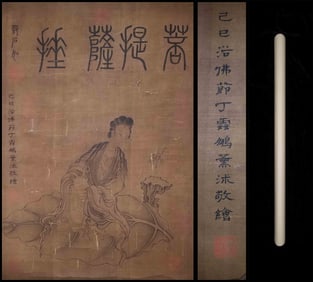 菩提薩埵
己巳浴佛節丁雲鵬薰沐敬繪
己巳浴佛節丁雲鵬薰沐敬繪